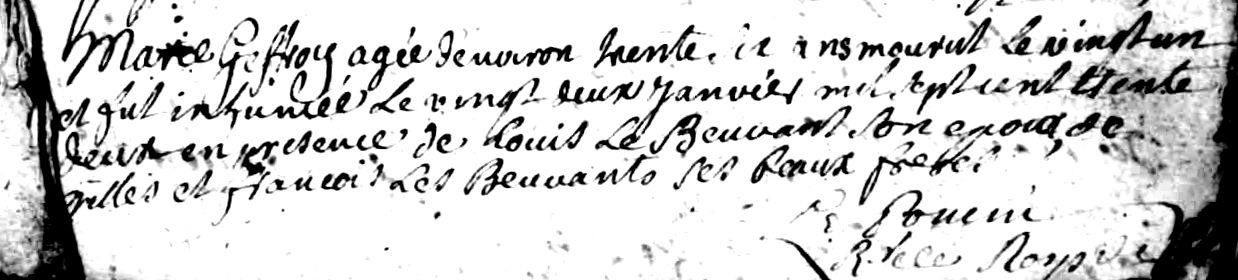 Marie Geffroy agée denviron trente six ans mourut le vingt un
et fut inhumée le vingt deux Janvier mil sept cent trente
deux en presence de Louis Le Beuvant son epoux de
gilles et francois Les Beuvants ses beaux freres